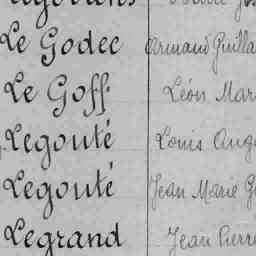 Le Godec Armand Guilla
Le Goff Léon Mar
Legouté Louis Aug
Legouté Jean Marie G
Legrand Jean Pierr